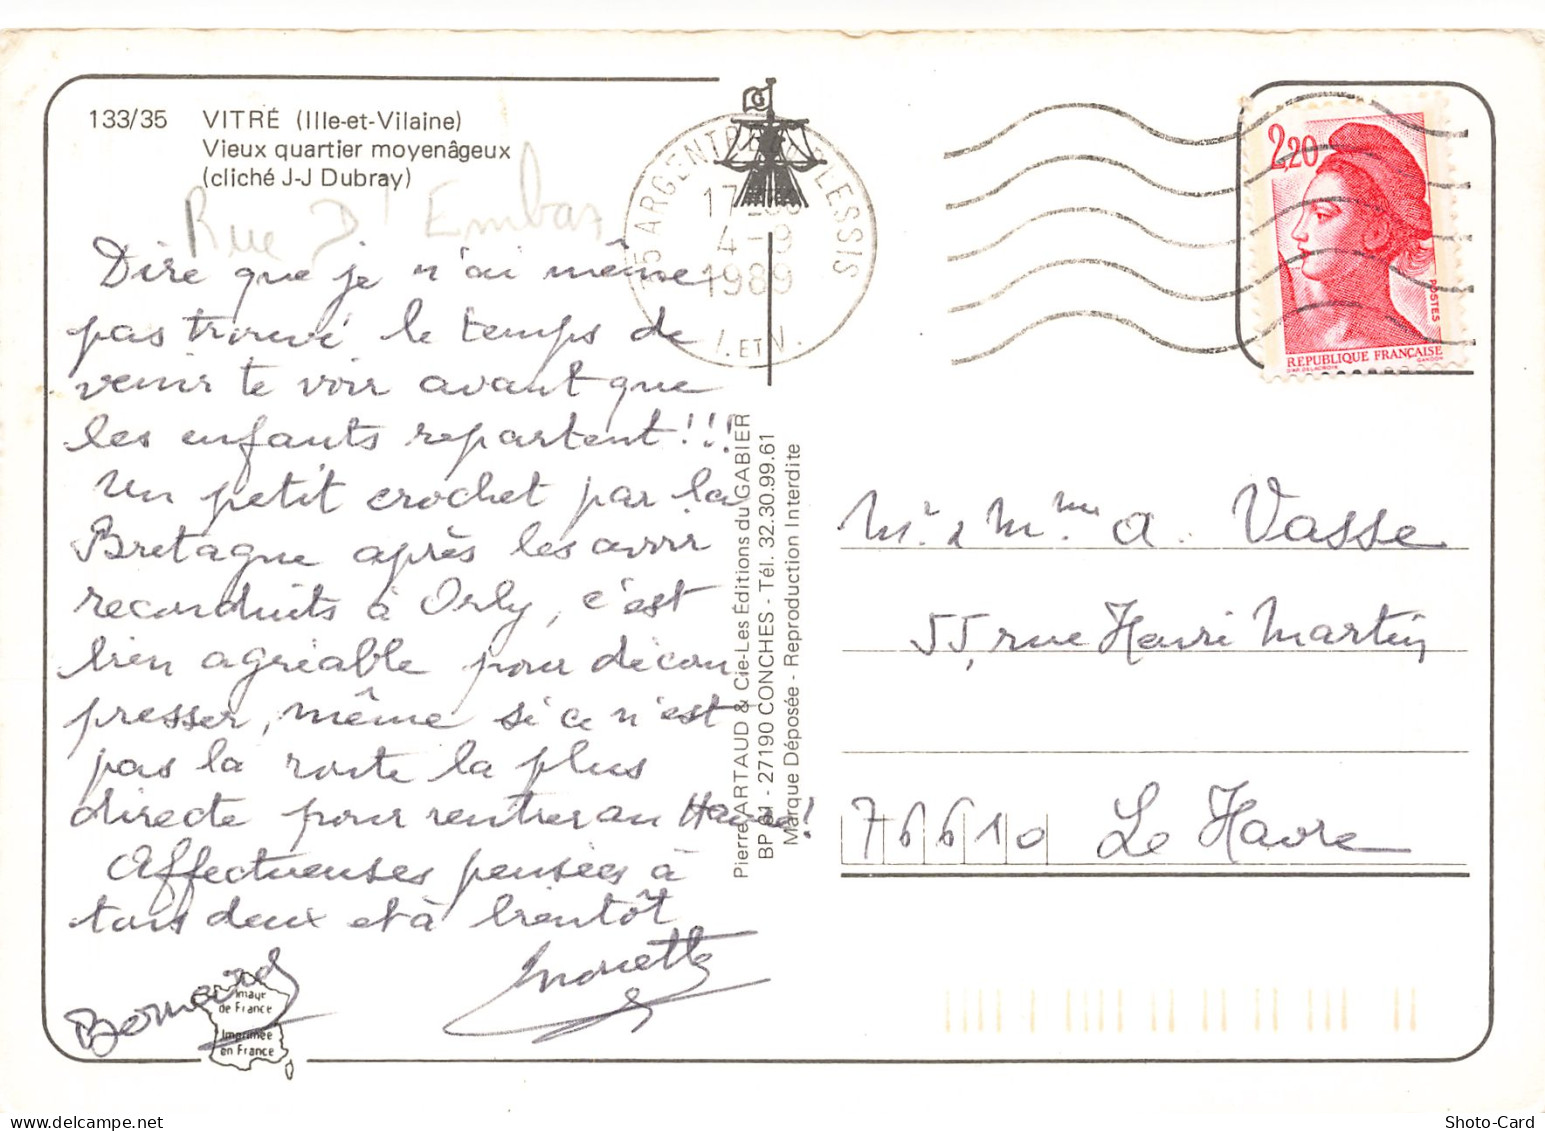 133/35 VITRÉ (Ille-et-Vilaine)
Vieux quartier moyenâgeux
(cliché J-J Dubray)
Rue D' Embas
Dire que je n'ai même
pas trouvé le temps de
venir te voir avant que
les enfants repartent!!!
Un petit crochet par la
Bretagne après les avoir
reconduits à Orly, c'est
bien agréable pour décom
presser, même si ce n'est
pas la route la plus
directe pour rentrer au Havre!
Affectueuses pensées à
tous deux et à bientôt
Bernard
Image
de France
Imprimée
en France
G
35 ARGENTRE DU PLESSIS
17
4-9
1989
I. ET V.
Pierre ARTAUD & Cie-Les Éditions du GABIER
BP 61 - 27190 CONCHES - Tél. 32.30.99.61
Marque Déposée - Reproduction Interdite
2,20
POSTES
REPUBLIQUE FRANÇAISE
GANDON
D'AP. DELACROIX
Mr. & Mme A. Vasse
55, rue Henri Martin
76610 Le Havre
Shoto-Card